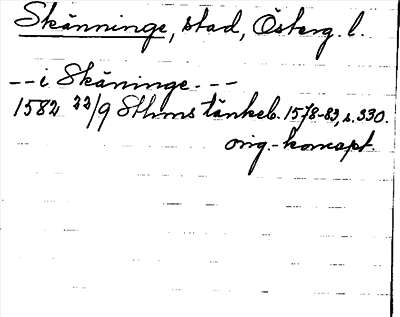 Skänninge, stad, Österg. l.
-- i Skäninge. --
1582 22/9 Sthms tänkeb. 1578-83, s. 330.
orig.-koncept.